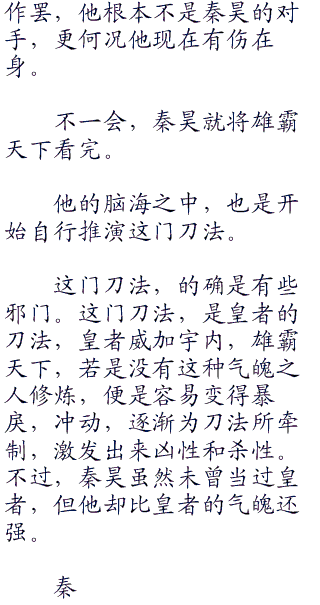 作罢，他根本不是秦昊的对
手，更何况他现在有伤在
身。
不一会，秦昊就将雄霸
天下看完。
他的脑海之中，也是开
始自行推演这门刀法。
这门刀法，的确是有些
邪门。这门刀法，是皇者的
刀法，皇者威加宇内，雄霸
天下，若是没有这种气魄之
人修炼，便是容易变得暴
戾，冲动，逐渐为刀法所牵
制，激发出来凶性和杀性。
不过，秦昊虽然未曾当过皇
者，但他却比皇者的气魄还
强。
秦